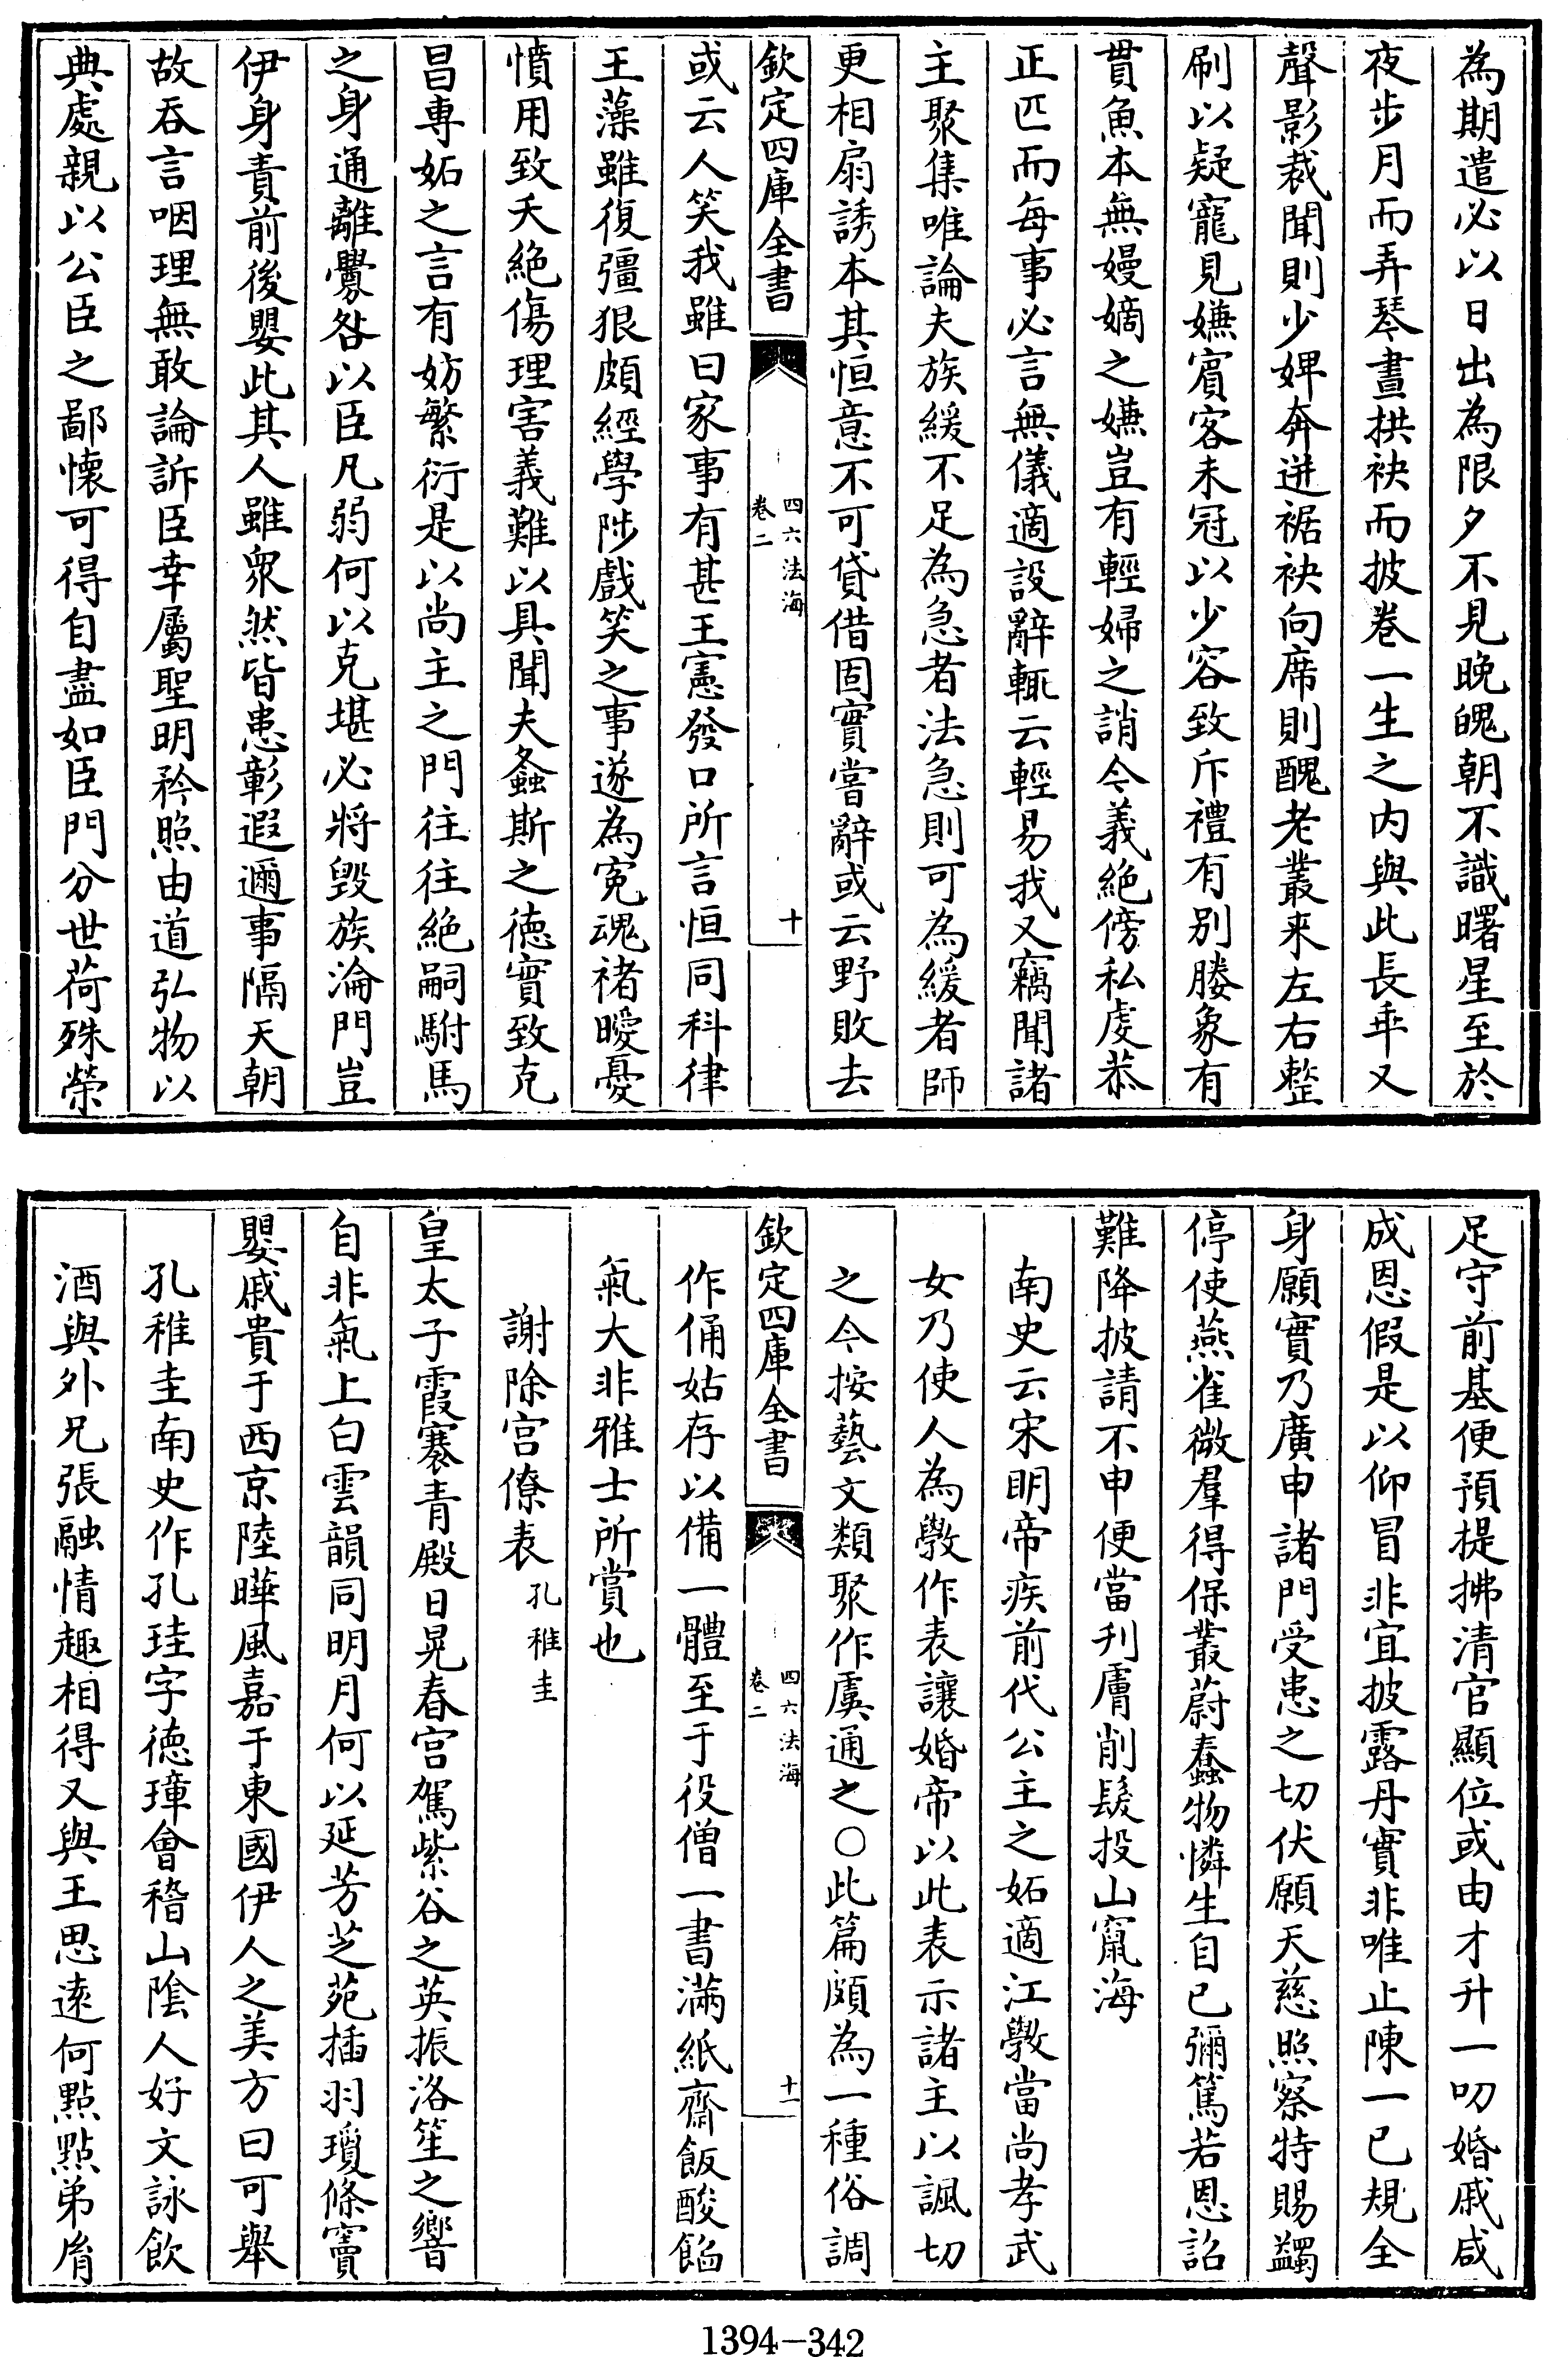 為期遣必以日出為限夕不見晚魄朝不識曙星至於
夜步月而弄琴晝拱袂而披卷一生之内與此長乖又
聲影裁聞則少婢奔迸裾袂向席則醜老叢来左右整
刷以疑寵見嫌賓客未冠以少容致斥禮有别媵象有
貫魚本無嫚嫡之嫌豈有輕婦之誚今義絶傍私䖍恭
正匹而每事必言無儀適設辭輒云輕易我又竊聞諸
主聚集唯論夫族緩不足為急者法急則可為緩者師
更相扇誘本其恒意不可貸借固實嘗辭或云野敗去
欽定四庫全書
四六法海
卷二
十
或云人笑我雖曰家事有甚王憲發口所言恒同科律
王藻雖復彊狠頗經學陟戲笑之事遂為寃魂褚曖憂
憤用致夭絶傷理害義難以具聞夫螽斯之徳實致克
昌專妬之言有妨繁衍是以尚主之門往往絶嗣駙馬
之身通離釁咎以臣凡弱何以克堪必將毁族淪門豈
伊身責前後嬰此其人雖衆然皆患彰遐邇事隔天朝
故吞言咽理無敢論訴臣幸屬聖明矜照由道弘物以
典處親以公臣之鄙懐可得自盡如臣門分世荷殊榮
足守前基便預提拂清官顯位或由才升一叨婚戚咸
成恩假是以仰冒非宜披露丹實非唯止陳一已規全
身願實乃廣申諸門受患之切伏願天慈照察特賜蠲
停使燕雀微羣得保叢蔚蠢物憐生自已彌篤若恩詔
難降披請不申便當刋膚削髮投山竄海
南史云宋明帝疾前代公主之妬適江斆當尚孝武
女乃使人為斆作表讓婚帝以此表示諸主以諷切
之今按藝文類聚作虞通之○此篇頗為一種俗調
欽定四庫全書
四六法海
卷二
十一
作俑姑存以備一體至于役僧一書滿紙齋飯酸餡
氣大非雅士所賞也
謝除宫僚表孔稚圭
皇太子霞褰青殿日晃春宫駕紫谷之英振洛笙之響
自非氣上白雲韻同明月何以延芳芝苑插羽瓊條竇
嬰戚貴于西京陸曄風嘉于東國伊人之美方曰可舉
孔稚圭南史作孔珪字徳璋會稽山隂人好文詠飲
酒與外兄張融情趣相得又與王思逺何點點弟胤
1394-342